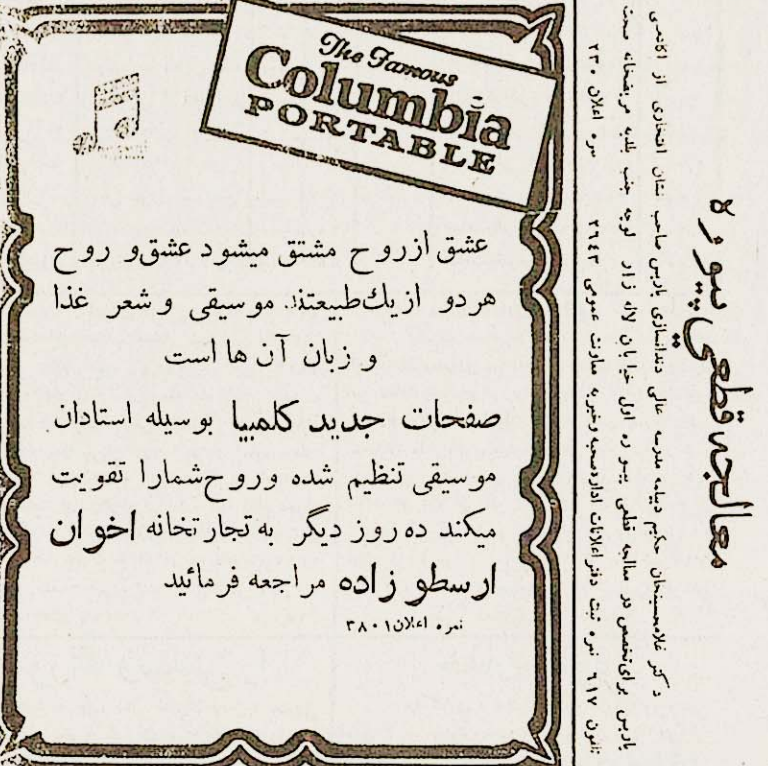 The Famous
Columbia
PORTABLE
عشق از روح مشتق میشود عشق و روح
هر دو از یك طبیعتند. موسیقی و شعر غذا
و زبان آن ها است
صفحات جدید كلمبیا بوسیله استادان
موسیقی تنظیم شده و روح شمارا تقویت
میكند ده روز دیگر به تجارتخانه اخوان
ارسطو زاده مراجعه فرمائید
نمره اعلان ۳۸۰۱
معالجه قطعی پیوره
دكتر غلامحسینخان حكیم دیپلمه مدرسه عالی دندانسازی پاریس صاحب نشان افتخاری از آكادمی
پاریس برای تخصص در معالجه قطعی پیوره اول خیابان لاله زار كوچه جنب بلدیه مریضخانه صحت
تلفون ٦١٧ نمره ثبت دفتر اعلانات اداره صحیه و خیریه معاونت عمومی ٢٦٤٣ نمره اعلان ٢٣٠